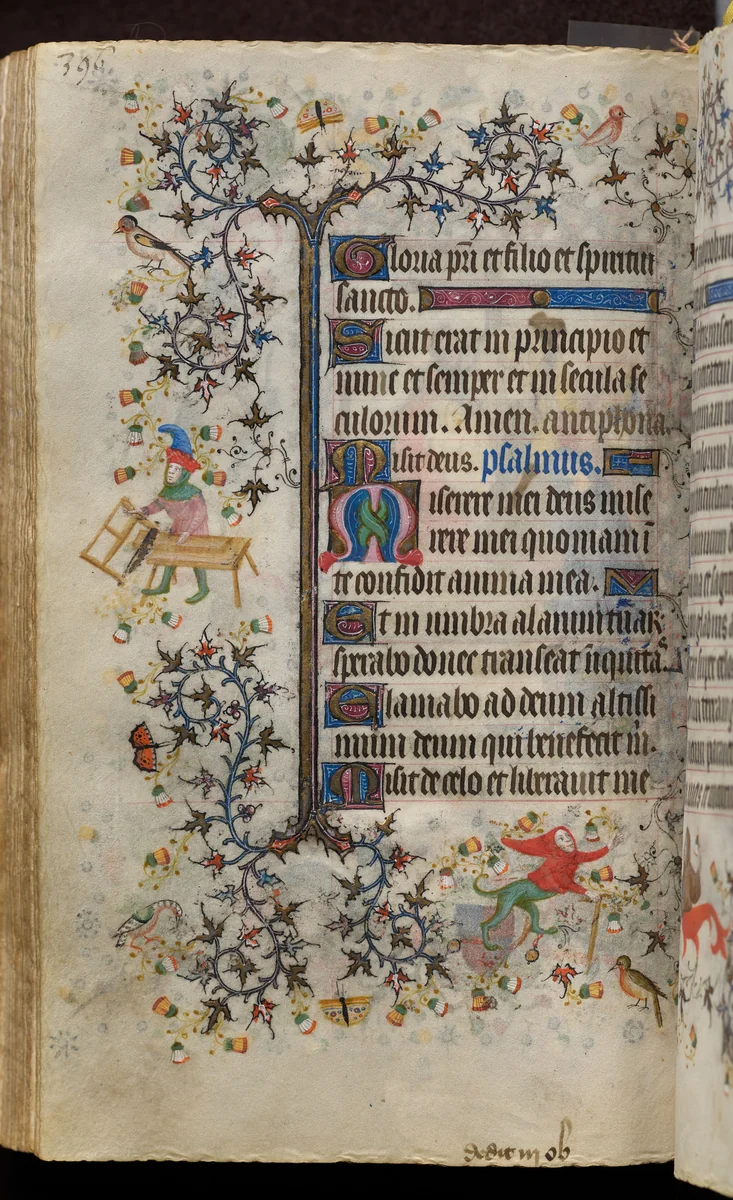 396
Gloria pr̄i et filio et spiritui
sancto.
Sicut erat in principio et
nunc et semper et in secula se
culorum. Amen. antiphona.
Misit deus. psalmus.
Miserere mei deus mise
rere mei quoniam ī
te confidit anima mea.
Et in umbra alarum tuar
sperabo donec transeat īiquitas.
Clamabo ad deum altissi
mum deum qui benefecit m̄.
Misit de celo et liberavit me